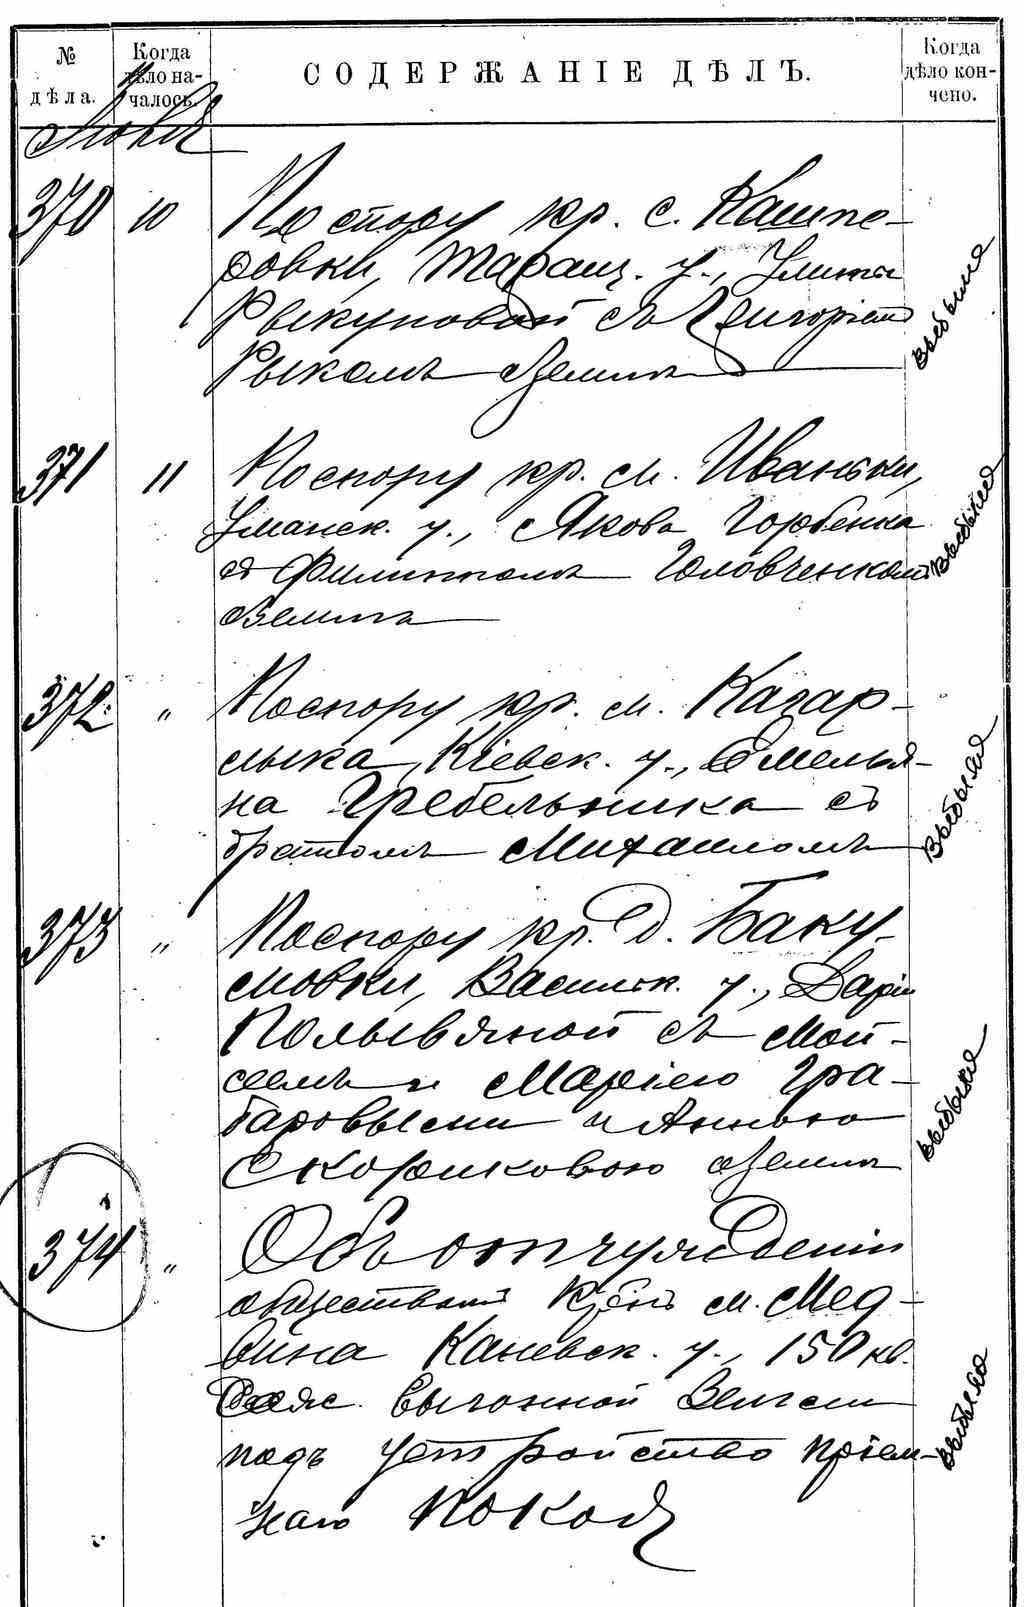 № дѣла.
Когда дѣло началось.
СОДЕРЖАНІЕ ДѢЛЪ.
Когда дѣло кончено.
370 10 По спору кр. с. Кашпе-
ровки, Таращ. у., Улиты
Рыкуновой съ Григоріемъ
Рыкомъ о землѣ
выбыло
371 11 По спору кр. м. Иваньки,
Уманск. у., Якова Горбенка
съ Филиппомъ Головченкомъ
о землѣ
выбыло
372. " По спору кр. м. Кагар-
лыка, Кіевск. у., Емелья-
на Гребельника съ
братомъ Михаиломъ
выбыло
373 " По спору кр. д. Баку-
мовки, Васильк. у., Даріи
Полывяной съ Мой-
сеемъ и Маріею Гра-
баровыми и Анною
Скориковою о землѣ
выбыло
374 " Объ отчужденіи
обществомъ кр-нъ м. Мед-
вина Каневск. у., 150 кв.
саж. выгонной земли
подъ устройство пріем-
наго покоя
выбыло